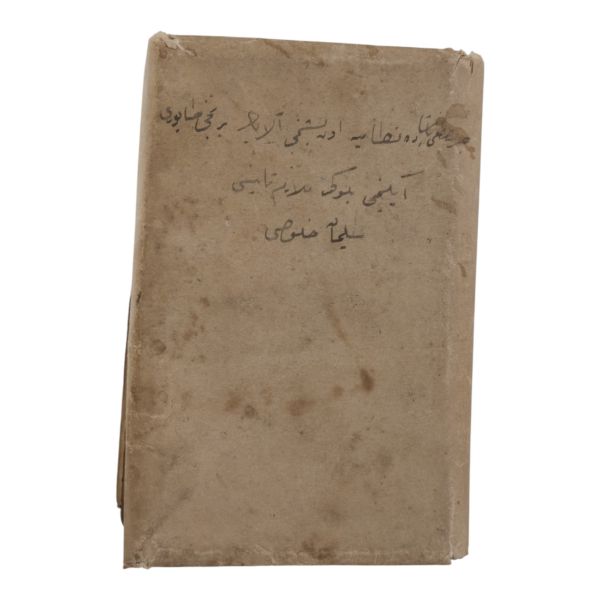 پیاده نظامیه اون بشنجی آلایك برنجی طابوری
ایکنجی بلوك ملازم ثانیسی
سلیمان خلوصی